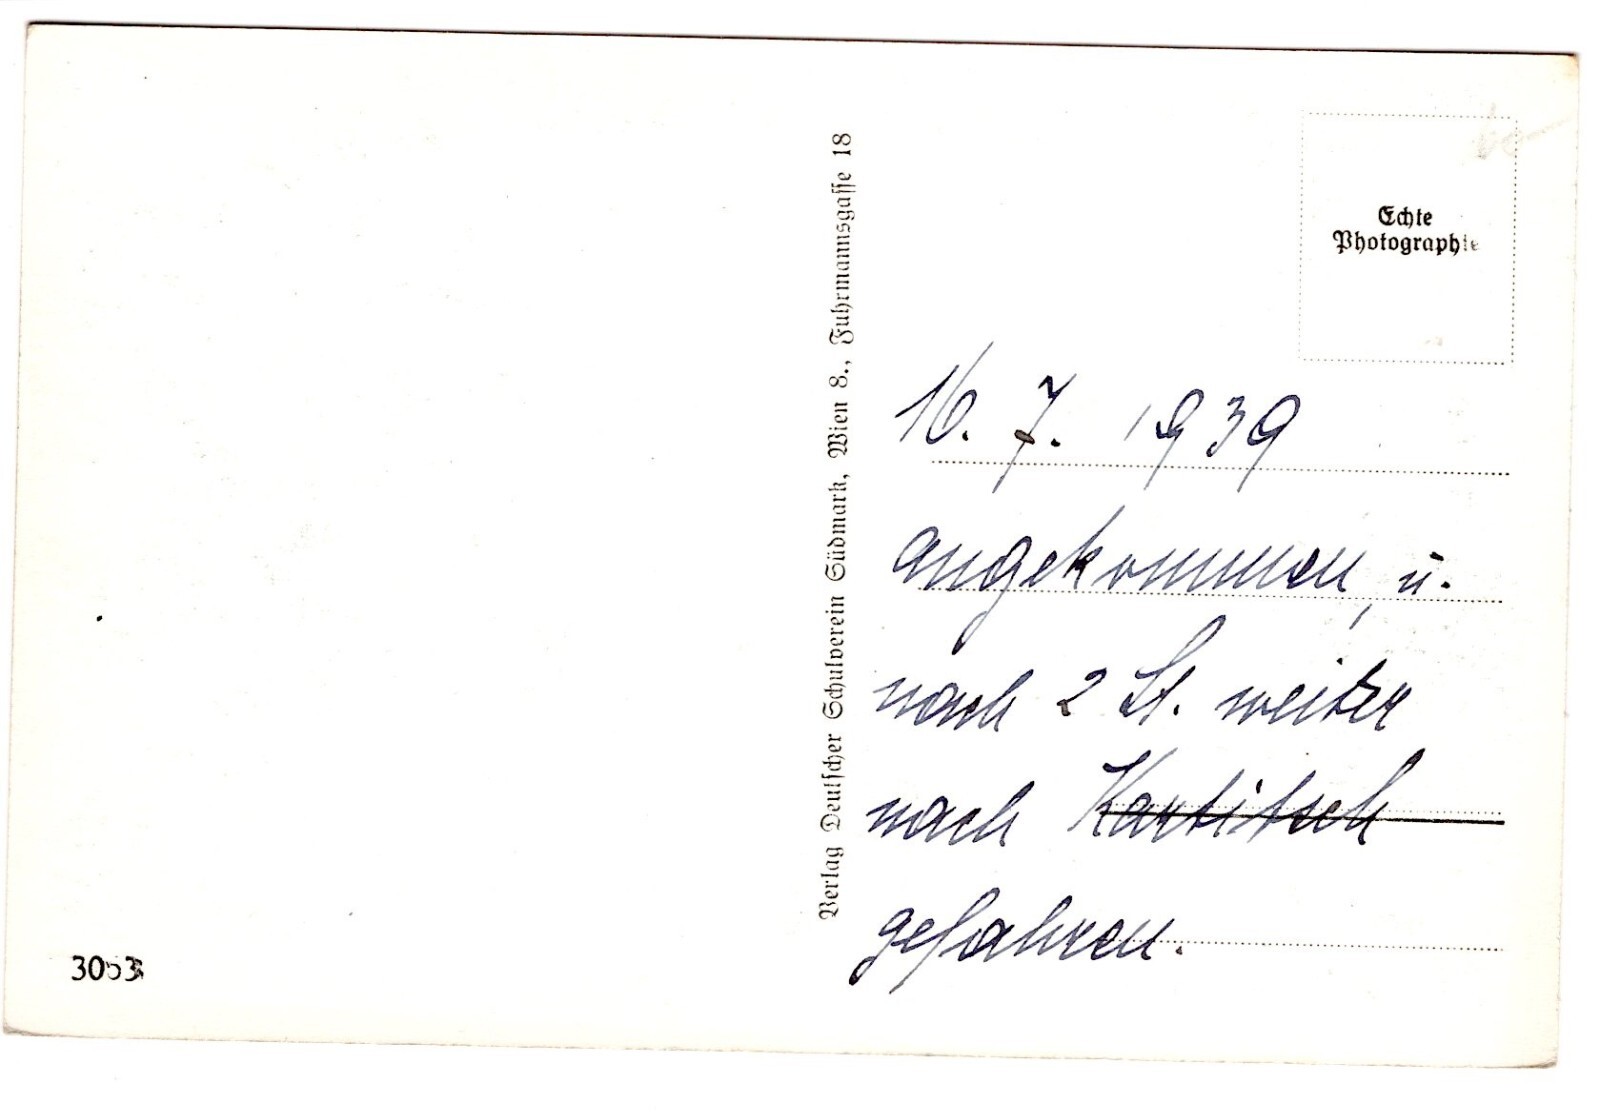 Verlag Deutscher Schulverein Südmark, Wien 8., Fuhrmannsgasse 18
Echte
Photographie
16. 7. 1939
angekommen, u.
nach 2 St. weiter
nach Kartitsch
gefahren.